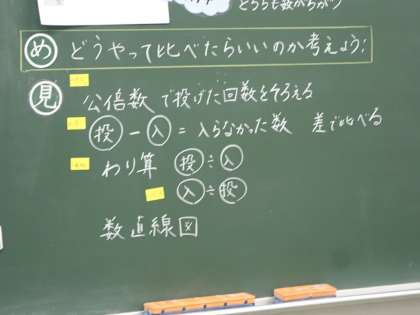 どちらも数がちがう
め どうやって比べたらいいのか考えよう!
見 公倍数で投げた回数をそろえる
投 − 入 = 入らなかった数 差で比べる
わり算 投 ÷ 入
入 ÷ 投
数直線図